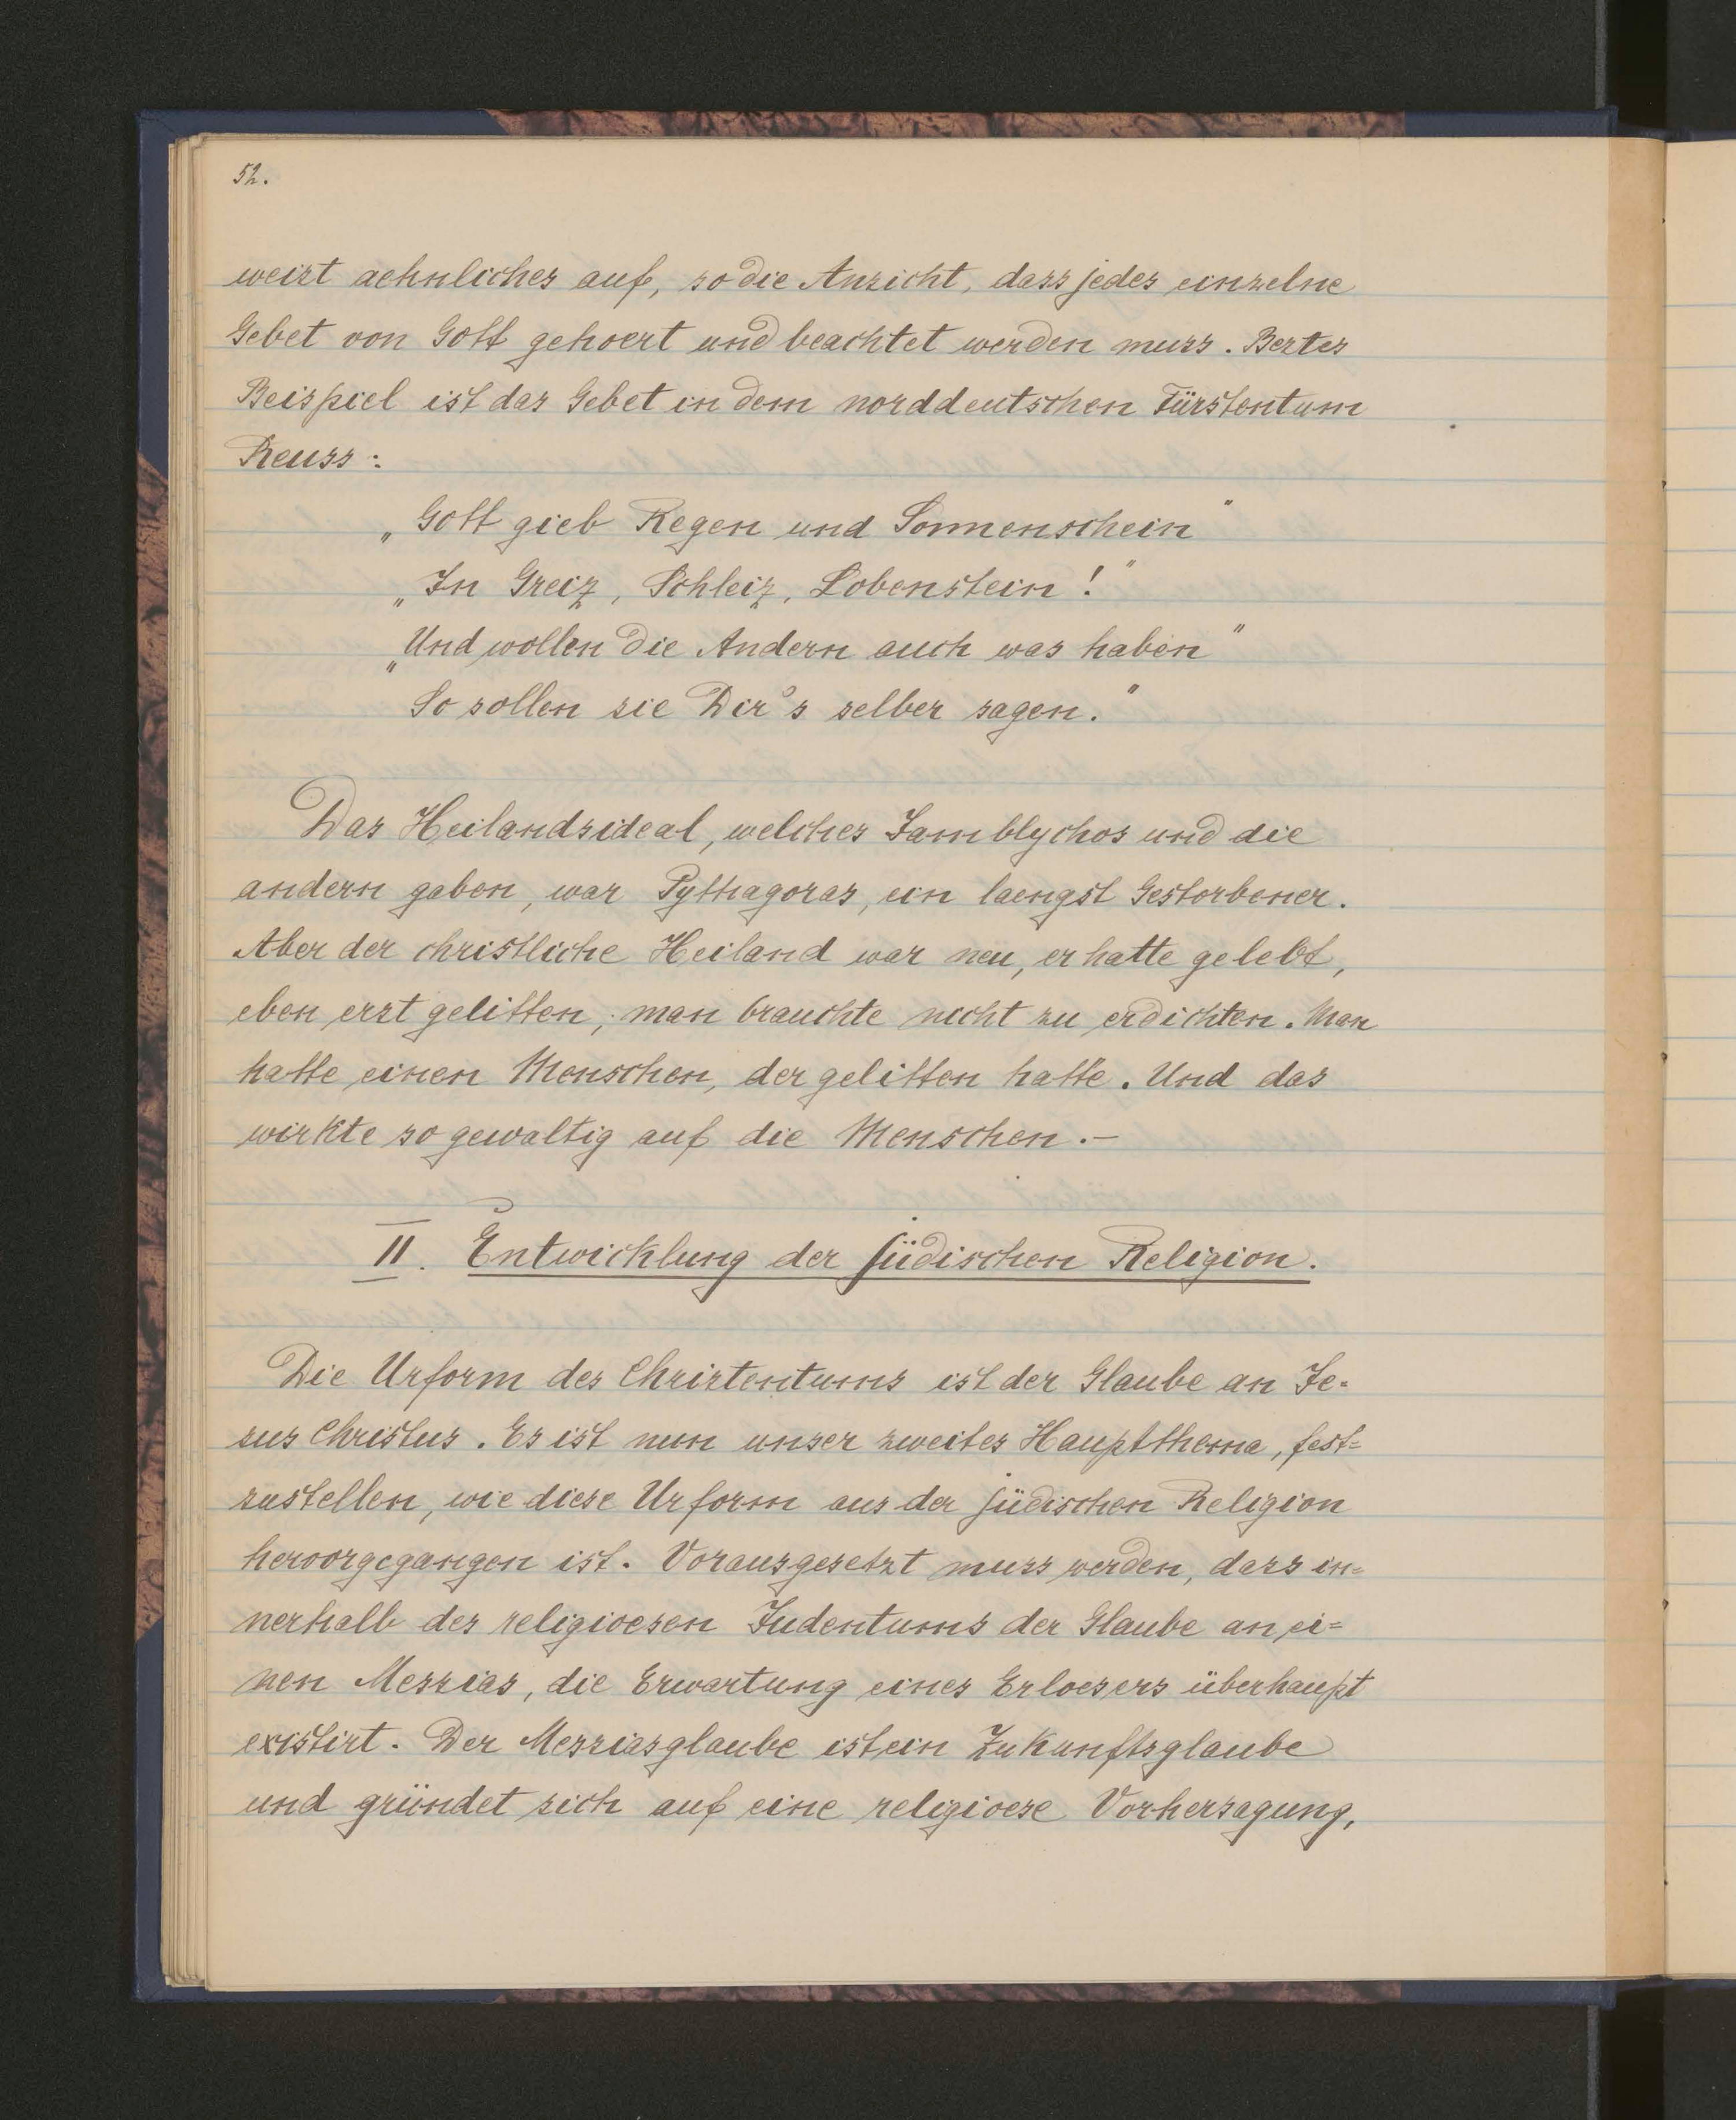 52.
weist aehnliches auf, so die Ansicht, dass jedes einzelne
Gebet von Gott gehoert und beachtet werden muss. Bestes
Beispiel ist das Gebet in dem norddeutschen Fürstentum
Reuss:
„Gott gieb Regen und Sonnenschein"
„In Greiz, Schleiz, Lobenstein!"
„Und wollen die Andern auch was haben"
So sollen sie Dir's selber sagen."
Das Heilandsideal, welches Jamblychos und die
andern gaben, war Pythagoras, ein laengst Gestorbener.
Aber der christliche Heiland war neu, er hatte gelebt,
eben erst gelitten; man brauchte nicht zu erdichten. Man
hatte einen Menschen, der gelitten hatte. Und das
wirkte so gewaltig auf die Menschen.—
II. Entwicklung der jüdischen Religion.
Die Urform des Christentums ist der Glaube an Je-
sus Christus. Es ist nun unser zweites Hauptthema, fest=
zustellen, wie diese Urform aus der jüdischen Religion
hervorgegangen ist. Vorausgesetzt muss werden, dass in=
nerhalb des religioesen Judentums der Glaube an ei=
nen Messias, die Erwartung eines Erloesers überhaupt
existirt. Der Messiasglaube ist ein Zukunftsglaube
und gründet sich auf eine religioese Vorhersagung,